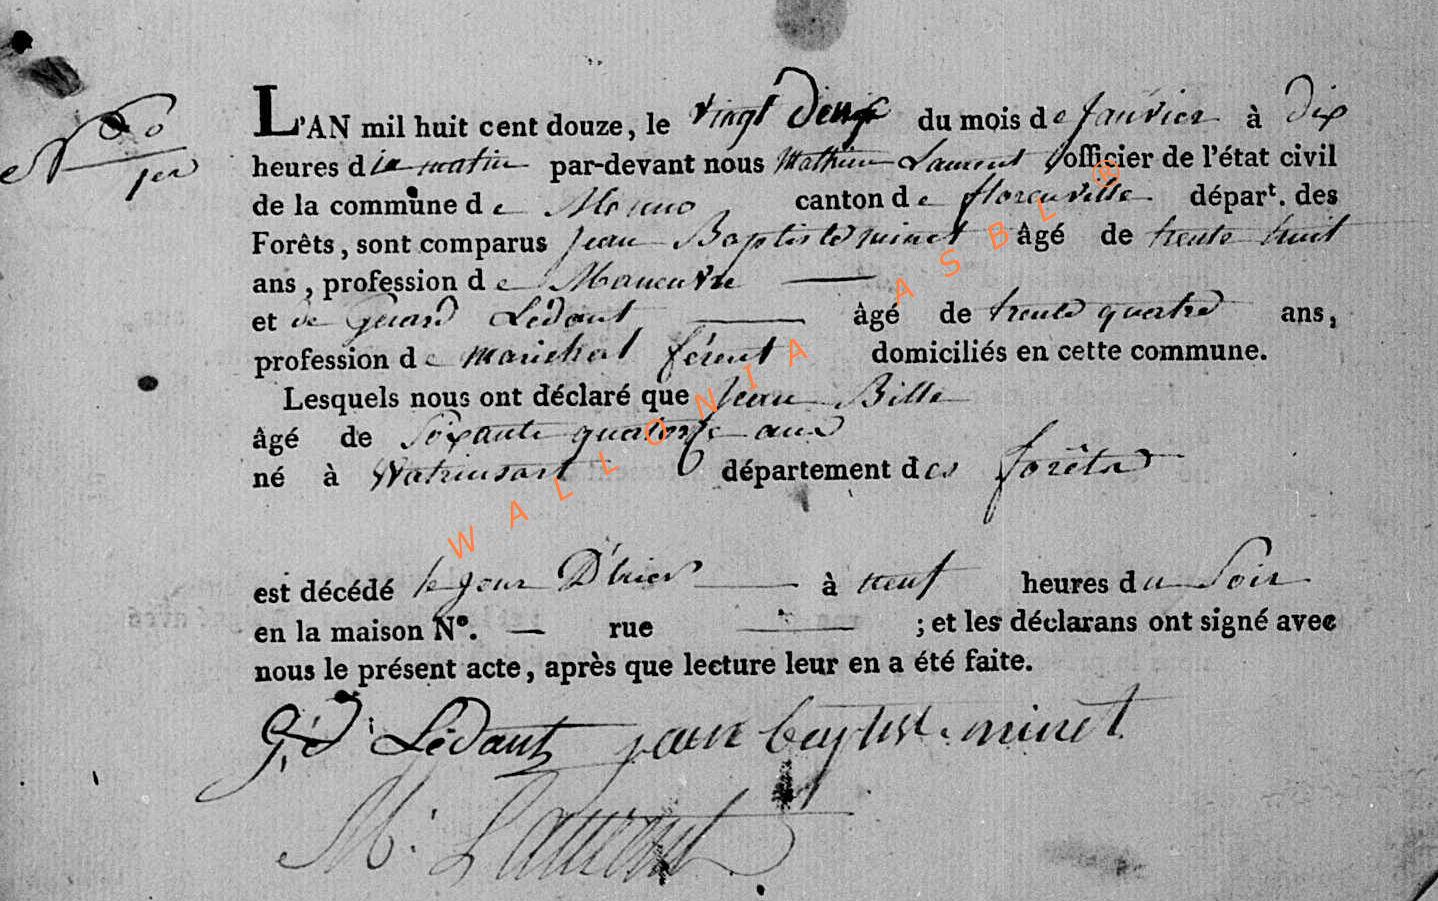 No
1er
L'AN mil huit cent douze, le vingt deux du mois de janvier à dix
heures du matin par-devant nous Mathieu Laurent officier de l'état civil
de la commune de canton de florenville départ. des
Forêts, sont comparus Jean Baptiste minet âgé de trente huit
ans, profession de Maneuvre
et de Gerard Lédant âgé de trente quatre ans,
profession de marichal férent domiciliés en cette commune.
Lesquels nous ont déclaré que Jean Bille
âgé de Soixante quatorze ans
né à Watrinsart département des forêts
est décédé le jour D'hier à neuf heures du Soir
en la maison N°. — rue — ; et les déclarans ont signé avec
nous le présent acte, après que lecture leur en a été faite.
G;d; Lédant jean baptist minet
M: Laurent
WALLONIA ASBL ®